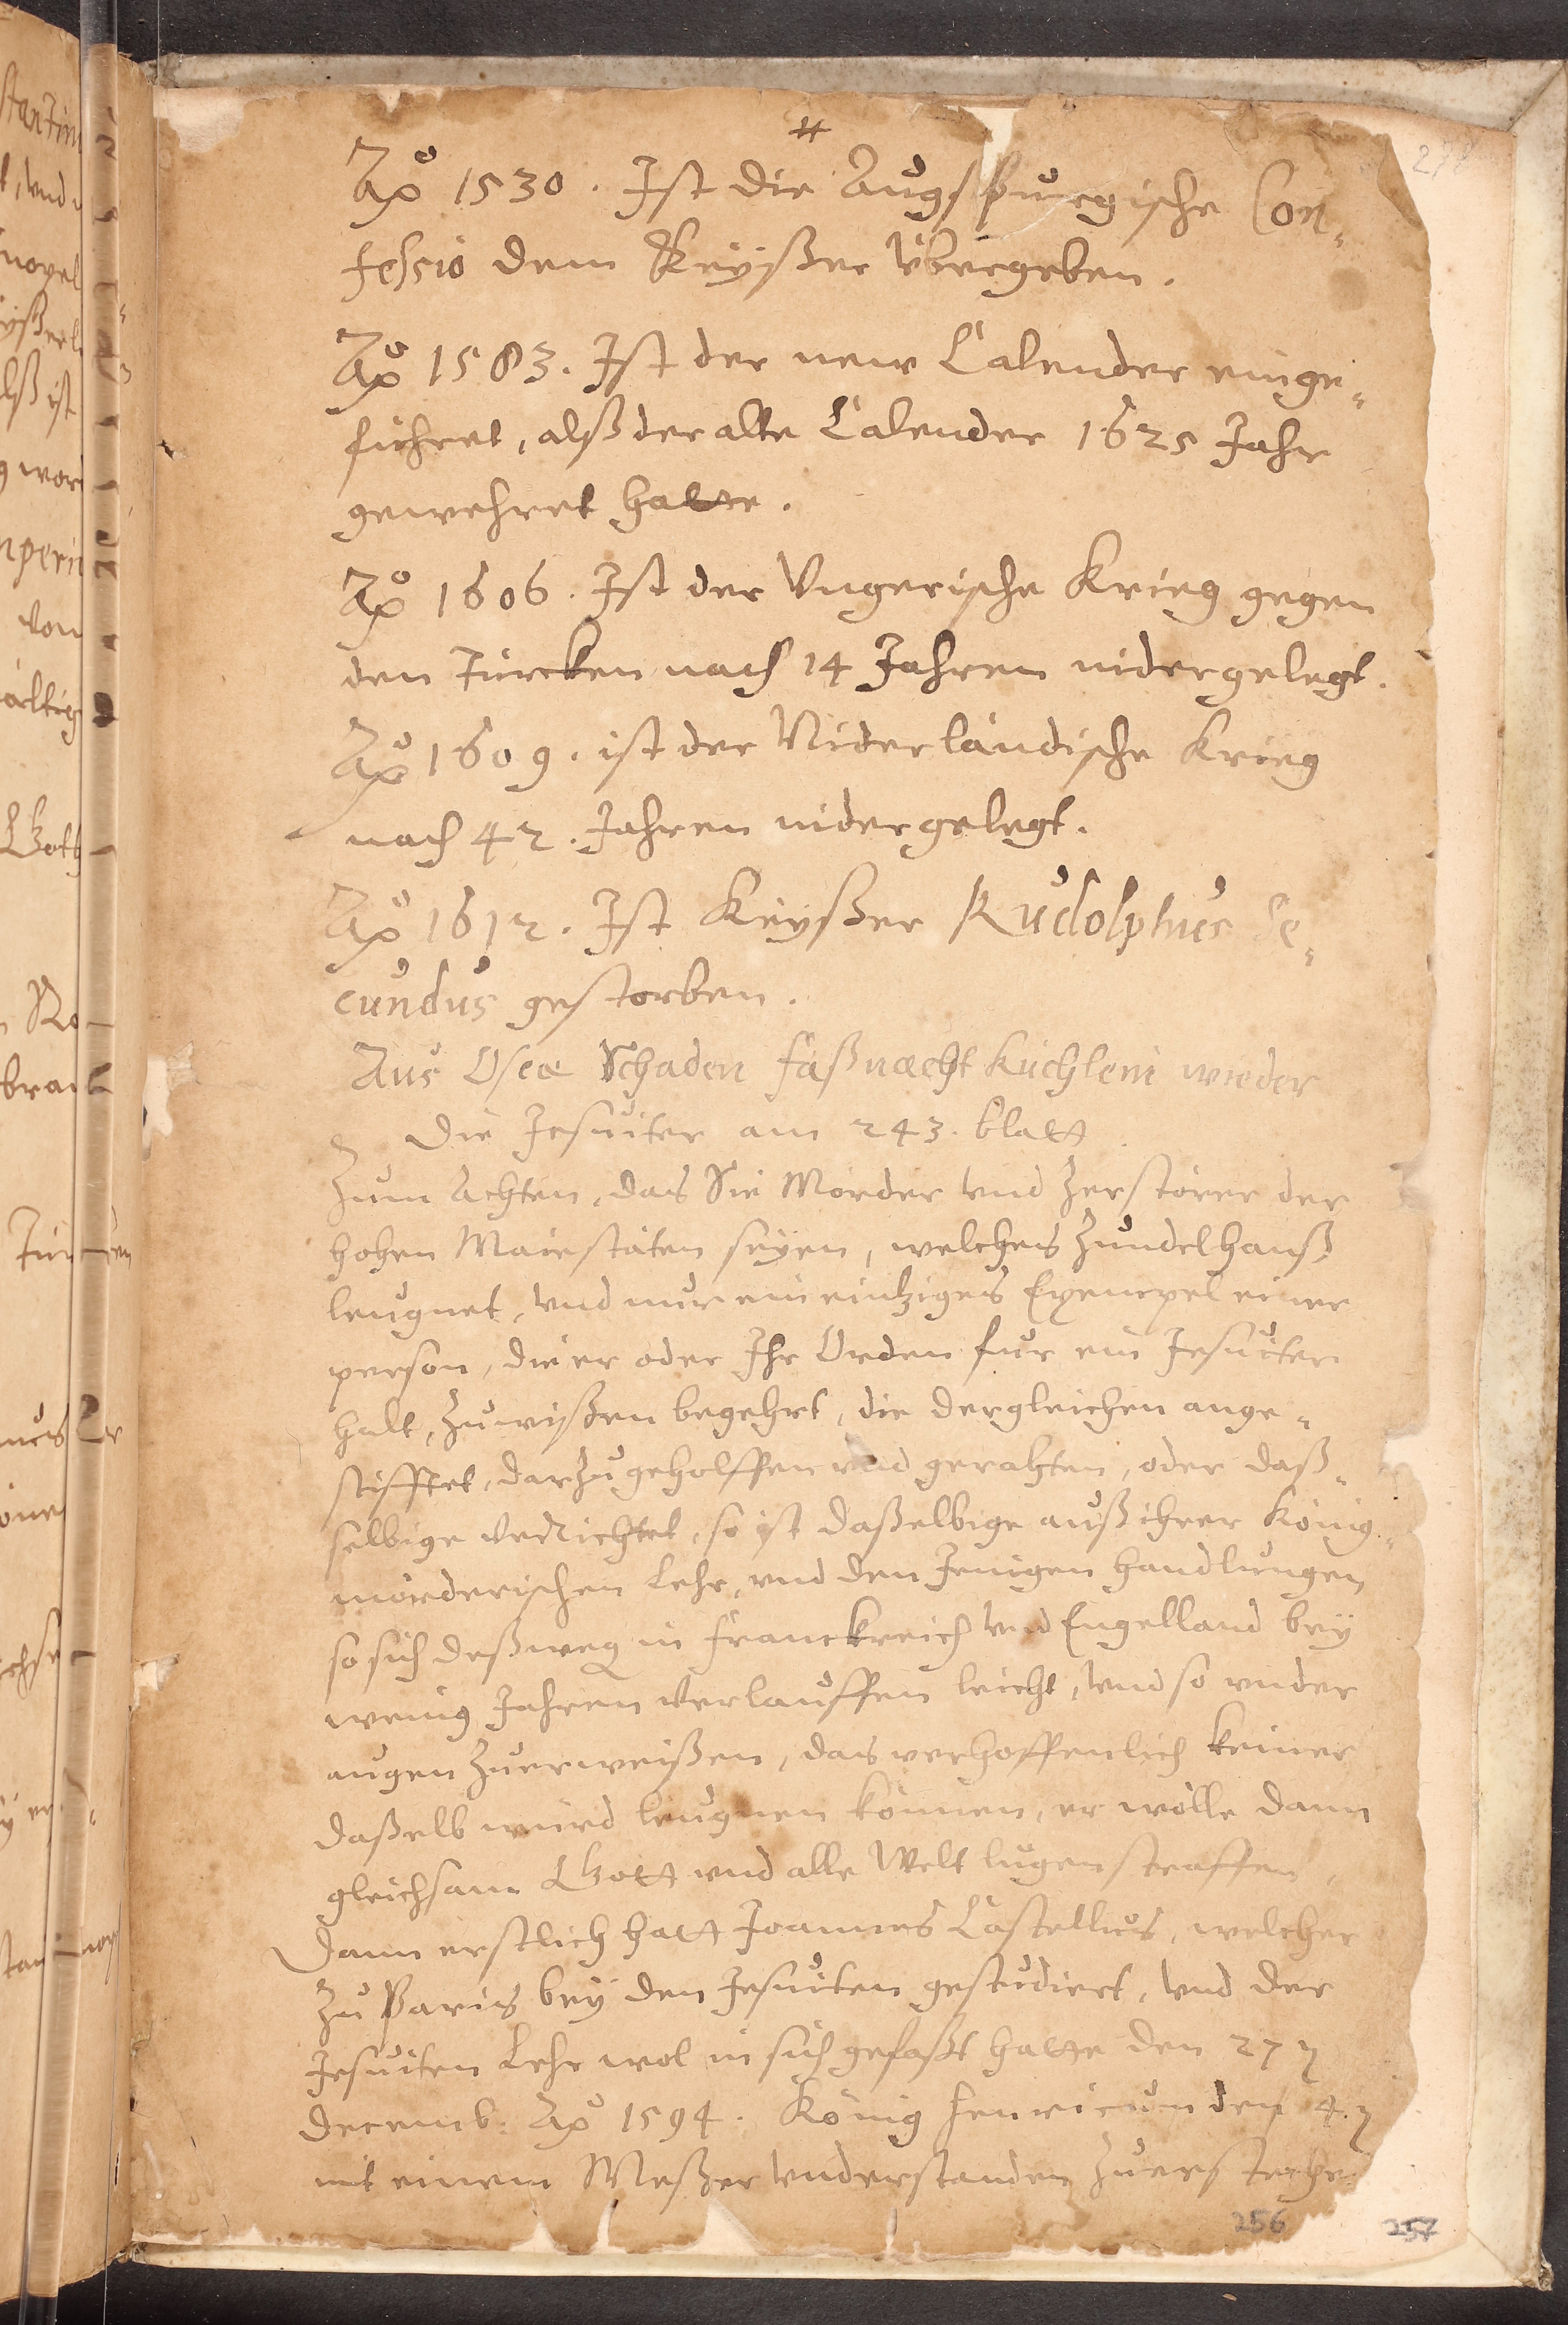 278
#
Aō 1530. Ist die Augspurgische Con-
fessio dem Keyßer Übergeben.
Aō 1583. Ist der new Calender einge-
führet, alß der alte Calender 1625 Jahr
gewehret hatte.
Aō 1606. Ist der Ungerische Krieg gegen
den Türcken nach 14 Jahren nidergelegt.
Aō 1609. ist der Niderländische Krieg
nach 42. Jahren nidergelegt.
Aō 1612. Ist Keyßer Rudolphus Se-
cundus gestorben.
Aus Oseæ Schaden faßnacht küchlein wieder
Die Jesuiter am 243. blatt.
Zum Achten, das Sie Mörder vnd Zerstörer der
hohen Maiestäten seyen, welches Zundelhanß
leugnet, vnd nur ein eintziges Exempel einer
person, die er oder Ihr Orden für ein Jesuiter
halt, Zuwißen begehrt, die dergleichen ange-
stifftet, darzu geholffen vnd gerahten, oder daß-
selbige verrichtet, so ist daßelbige auß ihrer König-
mörderischen Lehr, vnd den Jenigen handlungen,
so sich deßweg in Franckreich vnd Engelland bey
wenig Jahren verlauffen leicht, vnd so vnder
augen Zuerweißen, das verhoffenlich keiner
daßelb würd leugnen können, er wölle dann
gleichsam Gott vnd alle Welt lugen straffen,
Dann erstlich hatt Joannes Castellus, welcher
Zu Paris bey den Jesuiten gestudiert, vnd der
Jesuiten Lehr wol in sich gefaßt hatte den 27
Decemb. Aō 1594. König Henricum den 4.
mit einem Meßer vnderstanden Zuersteche
256
257